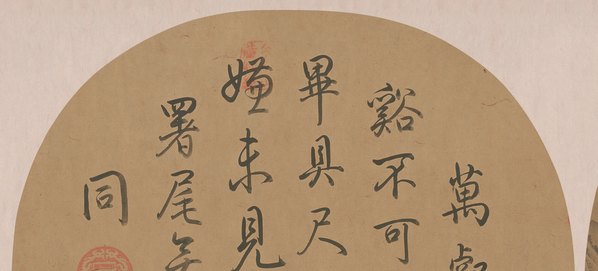 萬
谿不可
畢具尺
嫌未見
署尾年
同